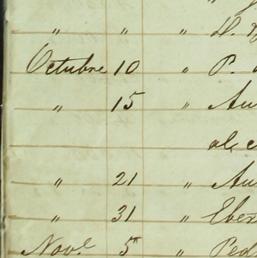 " " " D.
Octubre 10 " P.
" 15 " Au
al c
" 21 " Au
" 31 " Eber
Nove. 5 " Ped